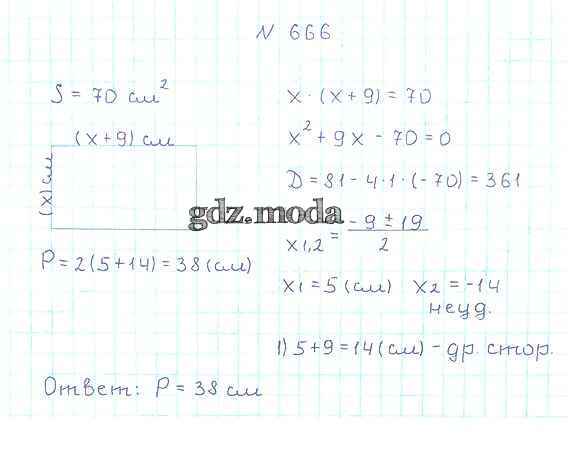 N 666
S = 70 см²
(x+9) см
(x) см
P = 2(5+14) = 38 (см)
x · (x+9) = 70
x² + 9x - 70 = 0
D = 81 - 4·1·(-70) = 361
x1,2 = (-9 ± 19)/2
x1 = 5 (см) x2 = -14
неуд.
1) 5+9 = 14 (см) - др. стор.
Ответ: P = 38 см
gdz.moda